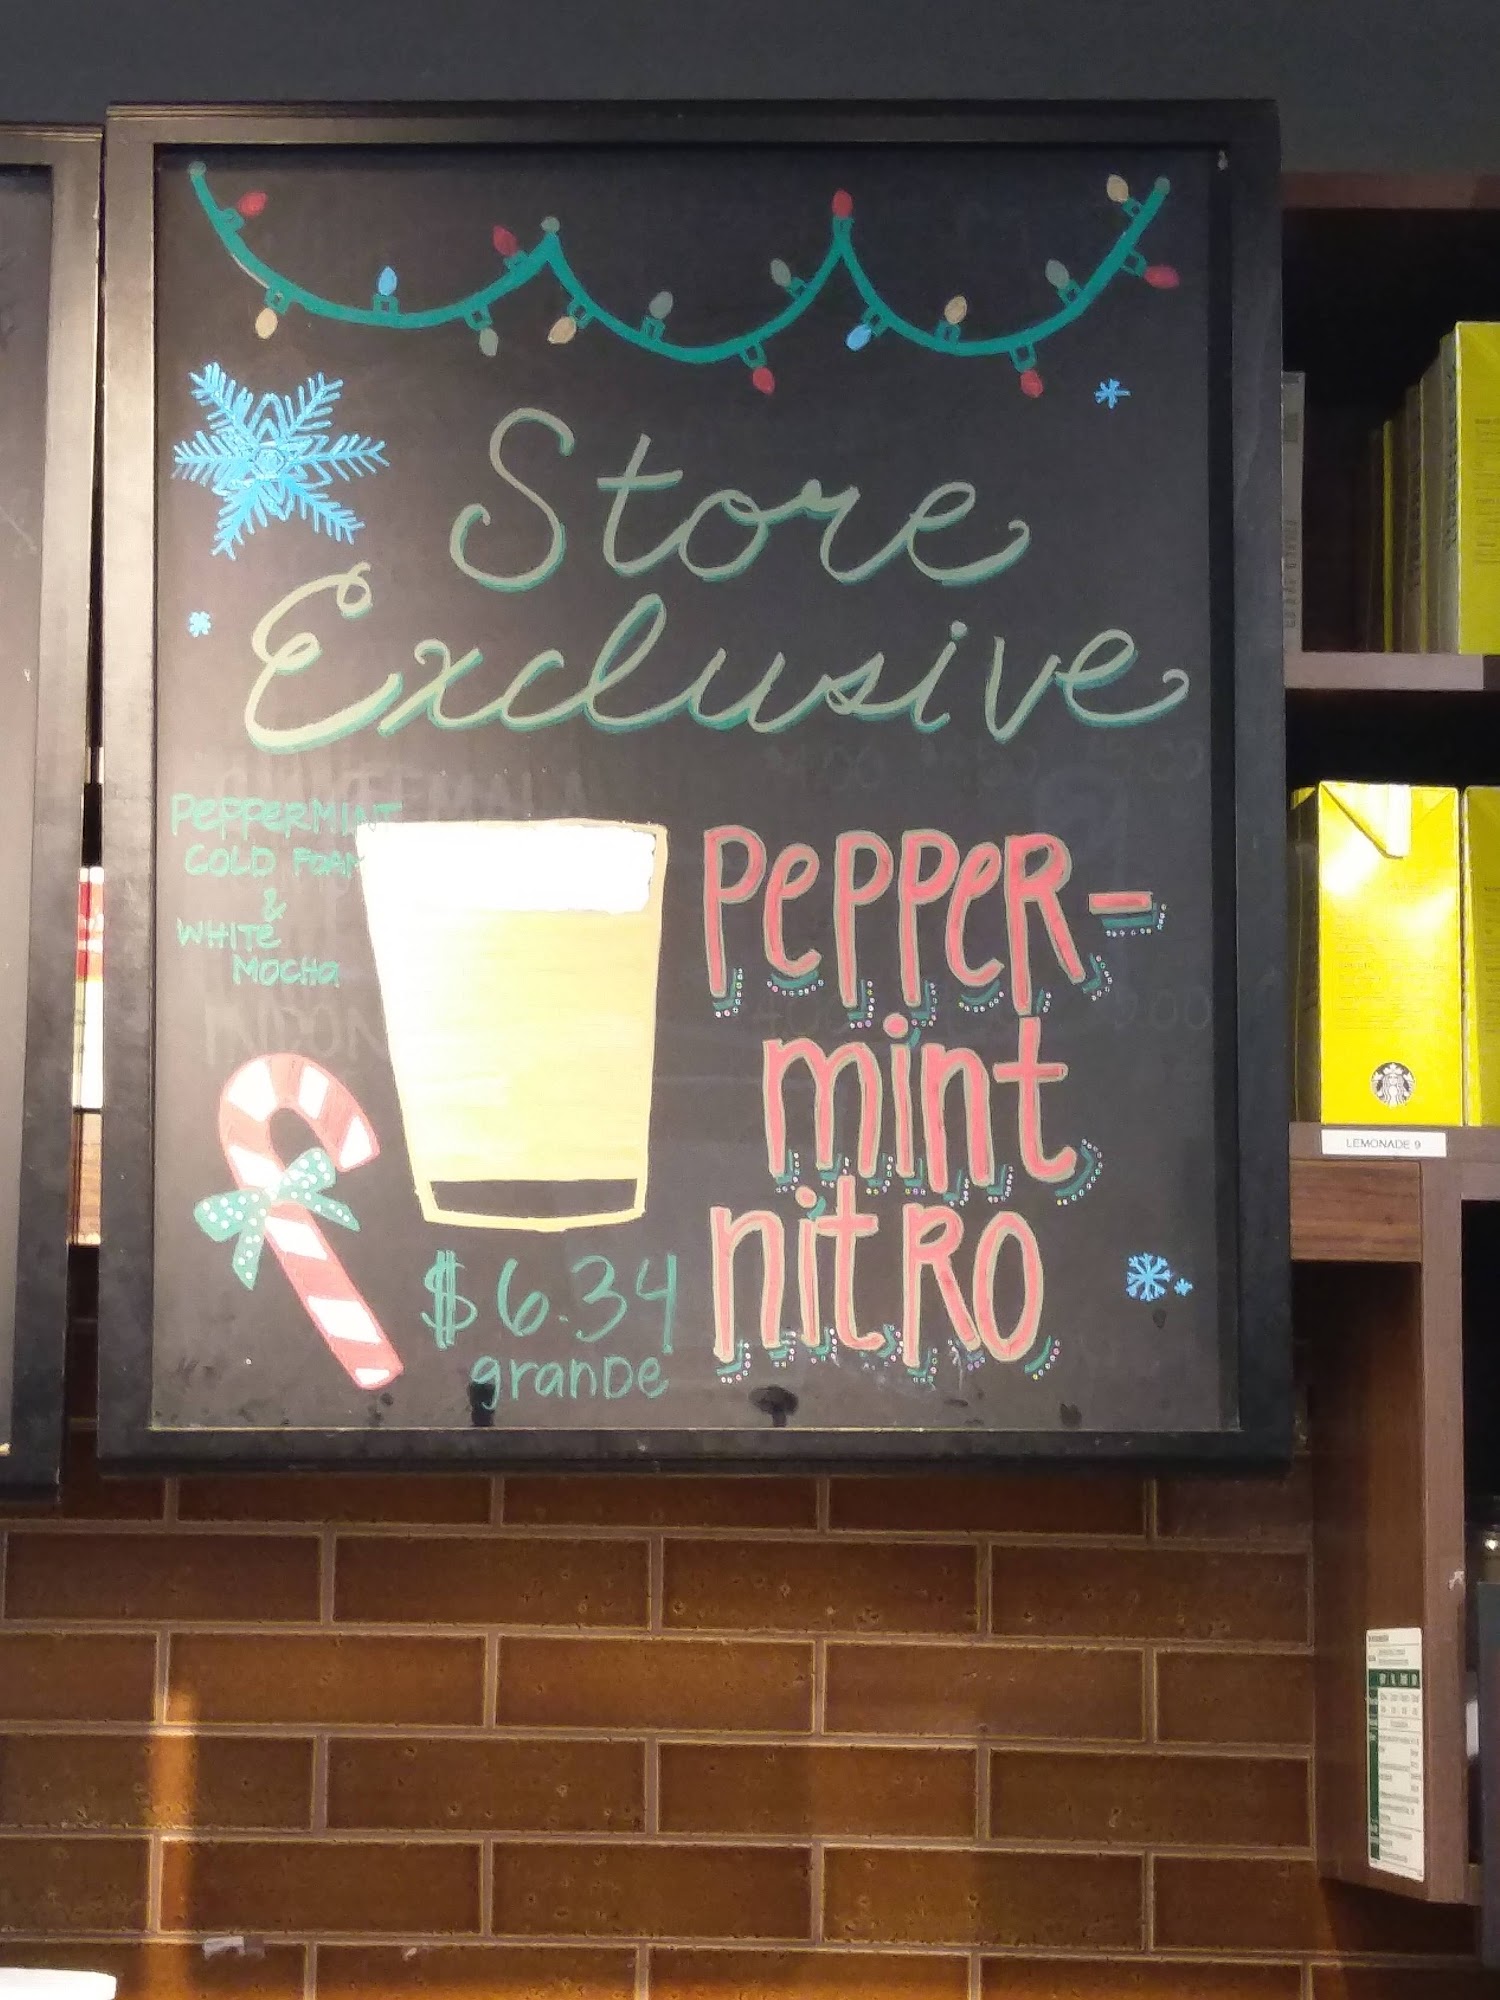 Store
Exclusive
PEPPERMINT
COLD FOAM
&
WHITE
MOCHA
PEPPER-
mint
nitRO
$6.34
granDe
LEMONADE 9